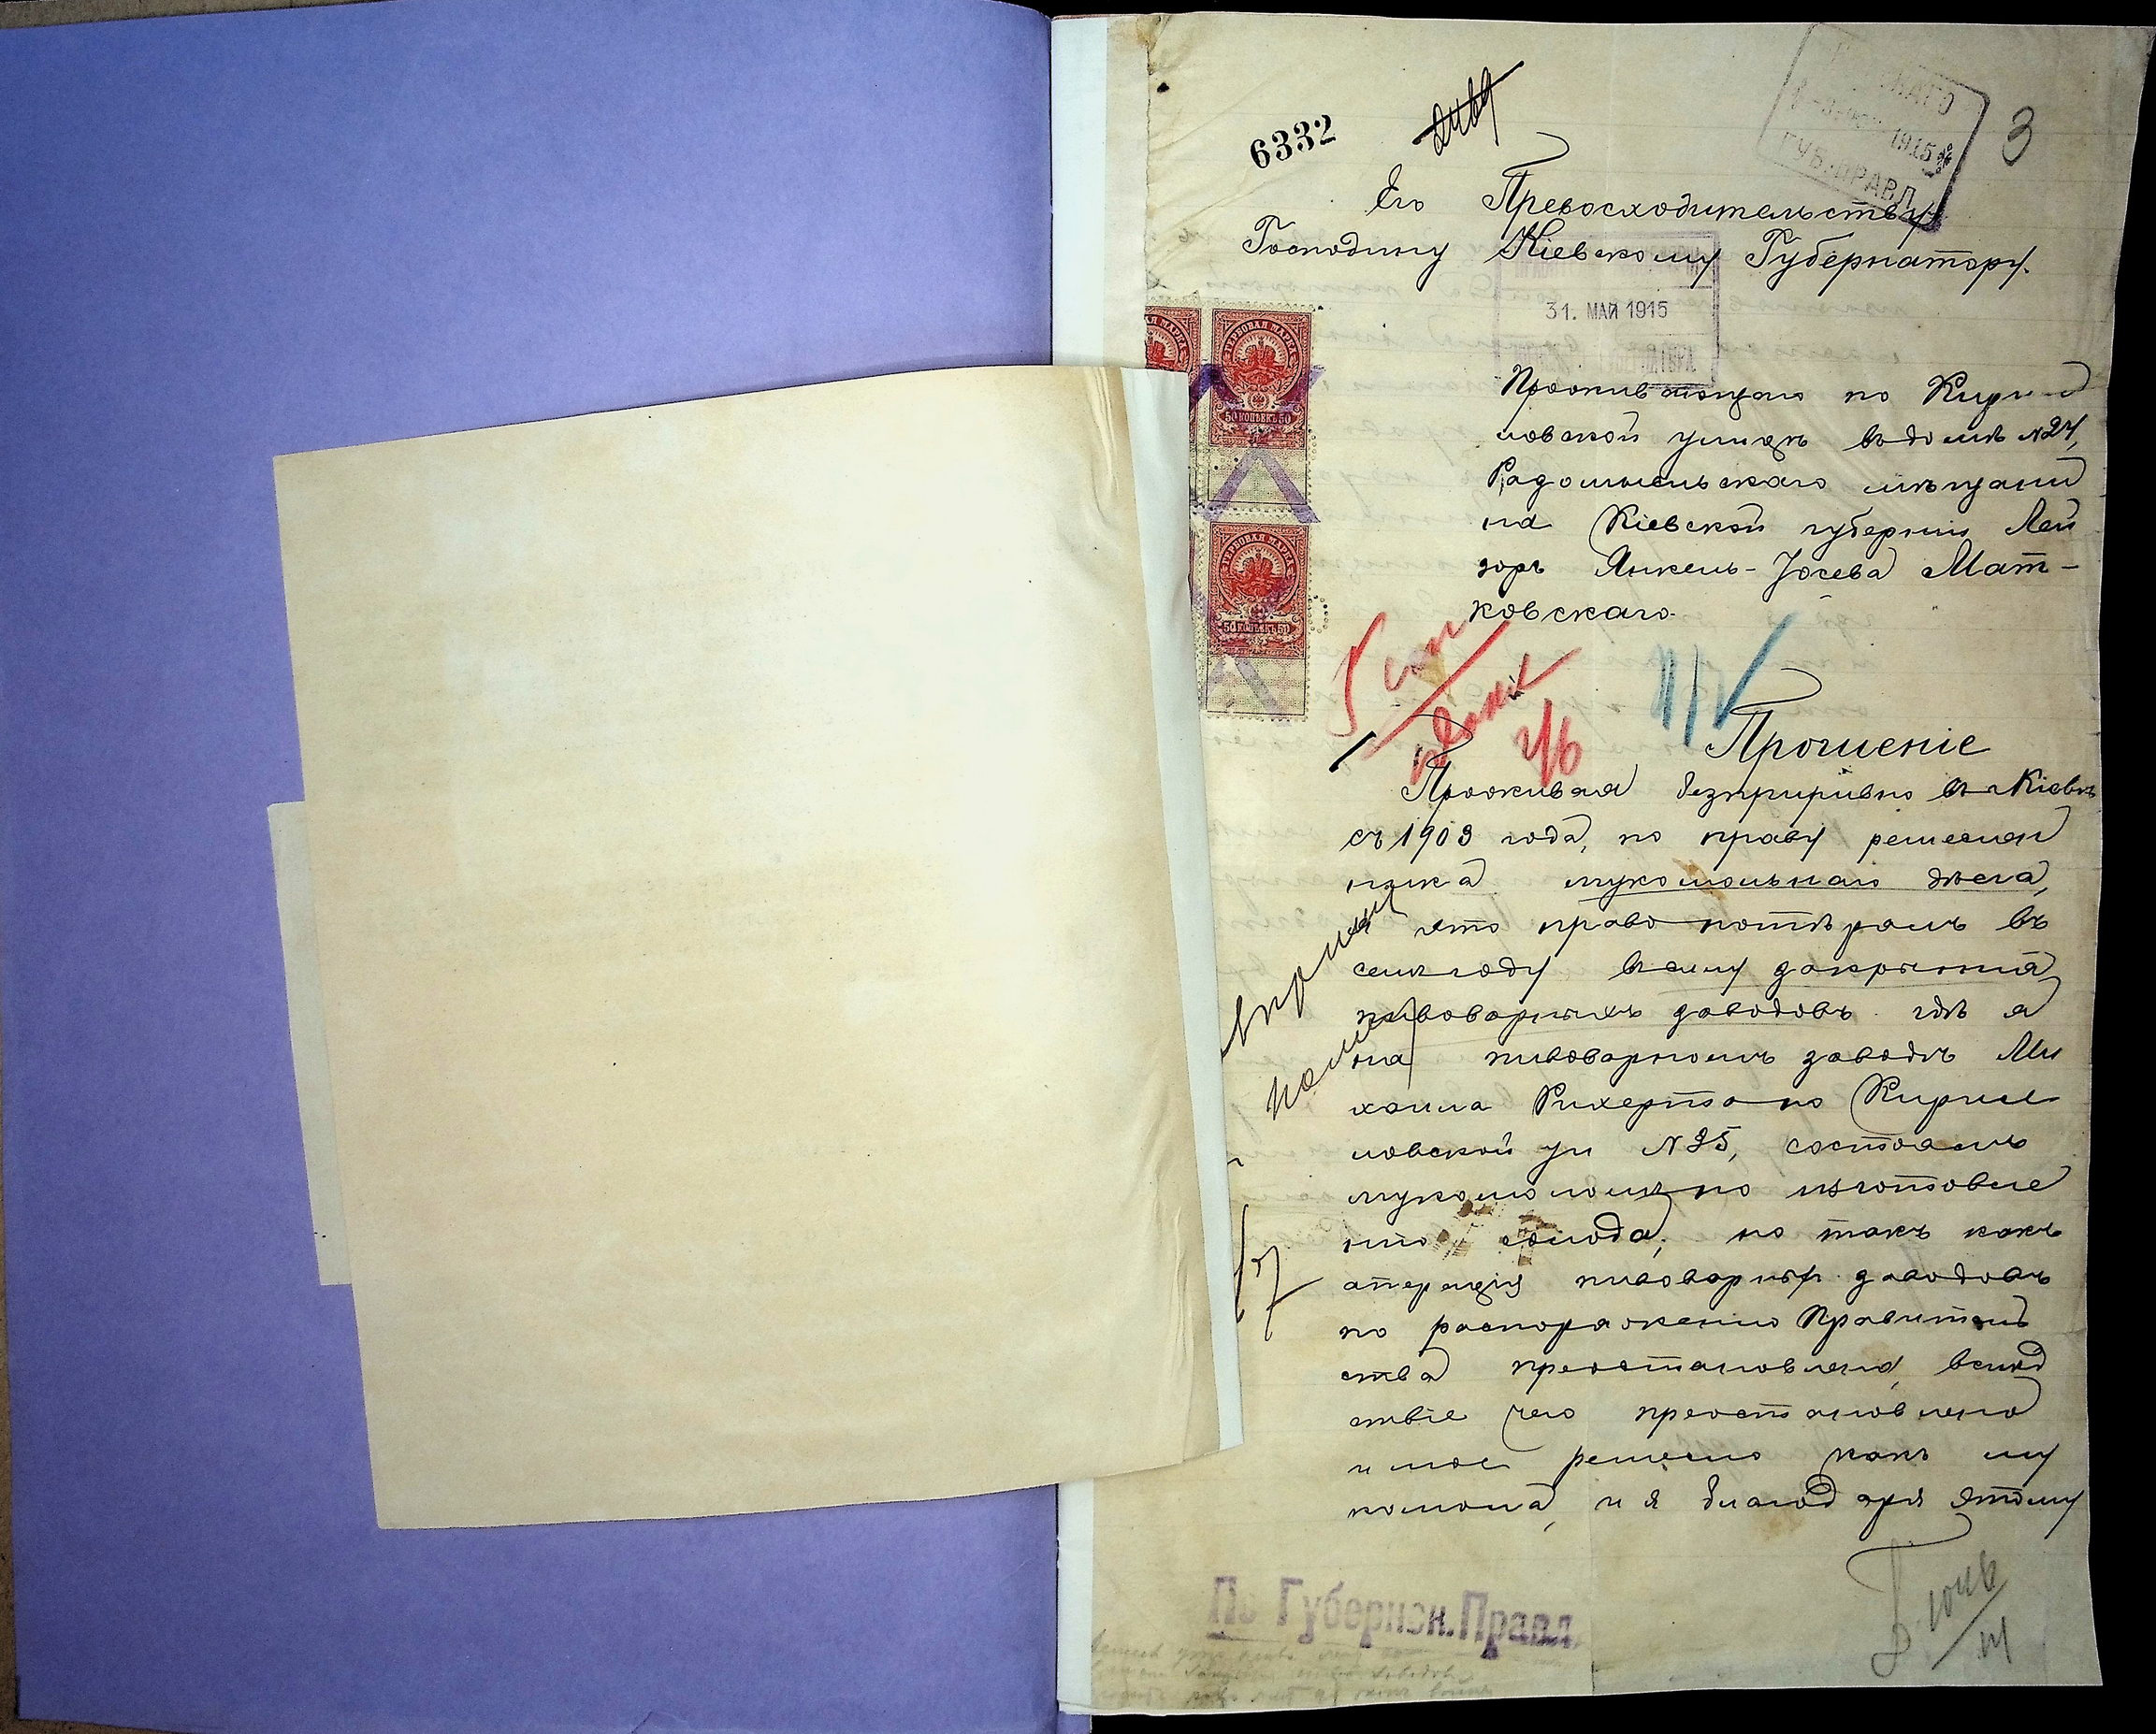 6332
3
1915
ГУБ. ПРАВЛ.
Его Превосходительству
Господину Кіевскому Губернатору.
31. МАЙ 1915
ГЕРБОВАЯ МАРКА
50 КОПѢЕКЪ 50
ГЕРБОВАЯ МАРКА
50 КОПѢЕКЪ 50
Проживающаго по Кирил
ловской улицѣ въ домѣ №24,
Радомысльскаго мѣщани
на Кіевской губерніи Лей
зоръ Янкель-Іосева Мат-
ковскаго.
5 ст
2/6
Прошеніе
Проживая безпрыривно въ Кіевѣ
съ 1903 года, по праву ремеслен
ника мукомольнаго дѣла,
это право потѣралъ въ
семъ году въ силу закрытія
пивоварныхъ заводовъ гдѣ я
на пивоварномъ заводѣ Ми
хаила Рихерта по Кирил
ловской ул №35, состоялъ
мукомоломъ по изготовле
нію солода, но такъ какъ
аперація пивоварных заводовъ
по распоряженію Правитель
ства преостановлена, вслѣд
ствіе чего преостановлено
и мое ремесло какъ му
комола, и я благодаря этому
По Губернск. Правл.